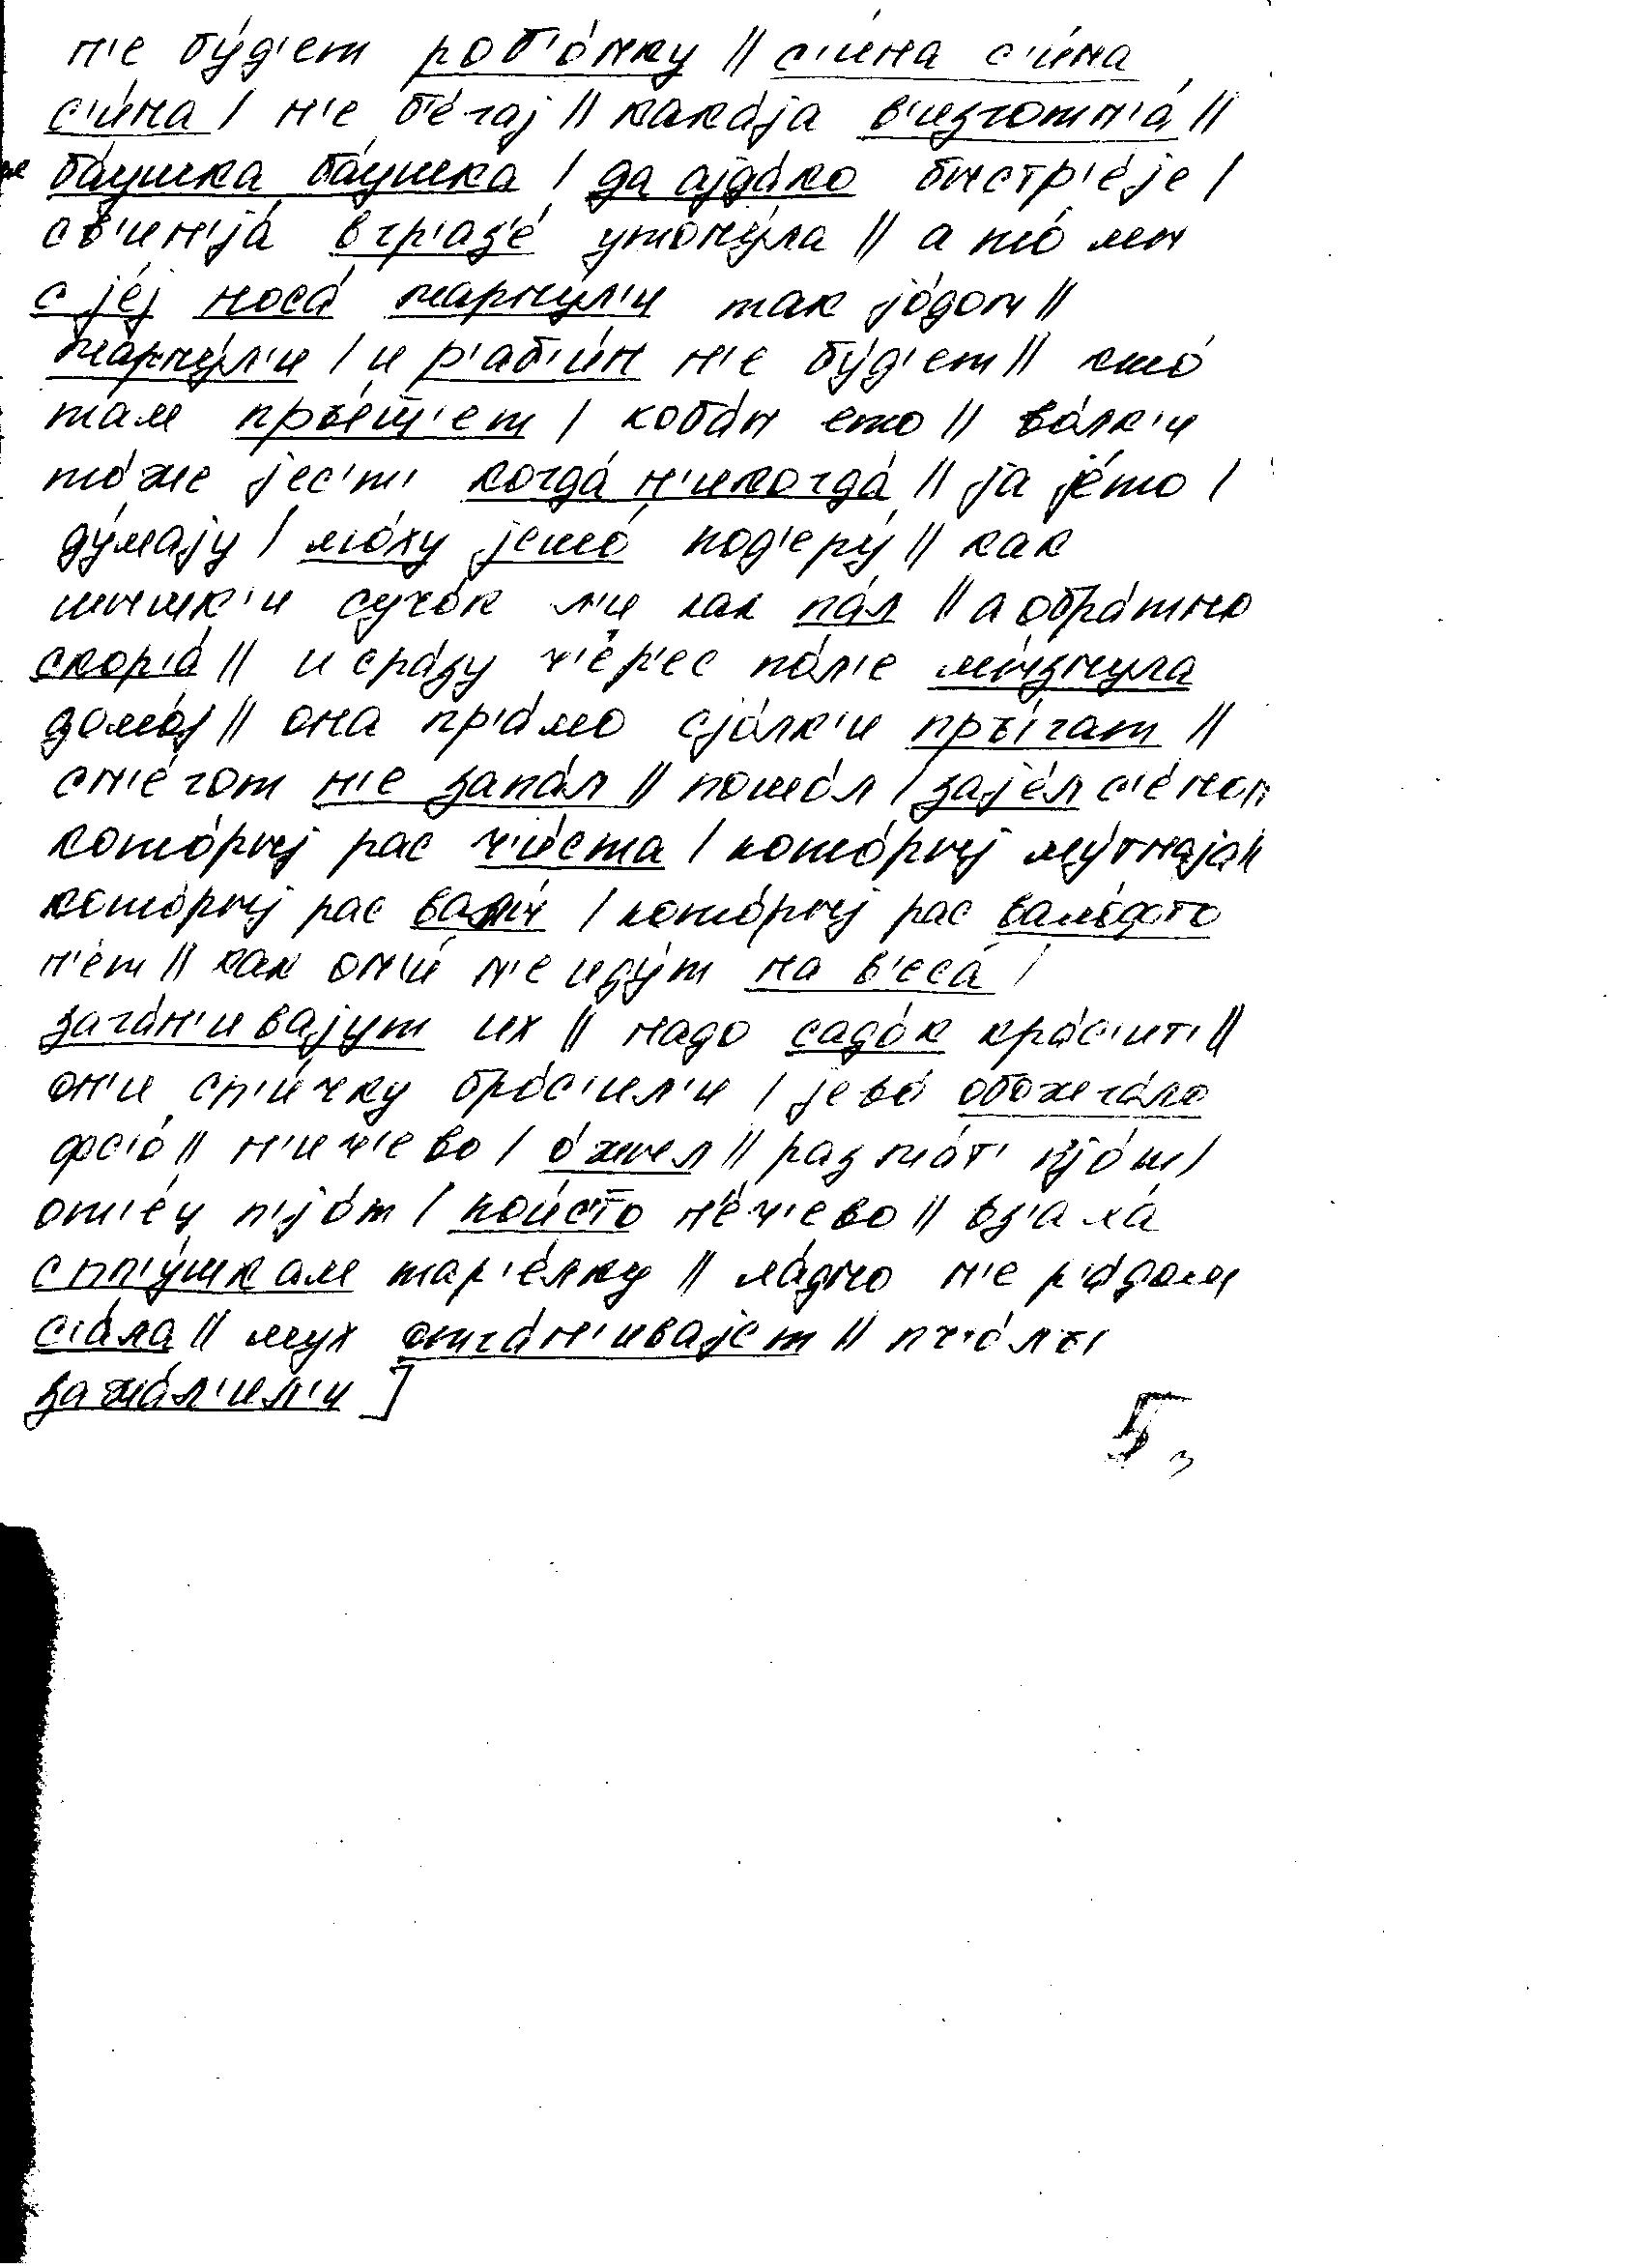 н'е бу́д'ет роб'о́нку || с'и́на с'и́на
с'и́на | н'е б'е́гај || кака́ја в'изготн'а́ ||
ба́ушка ба́ушка | да ајда́ко быстр'е́је |
св'ин'jа́ в гр'аз'е́ утону́ла || а то́ мы
с јéј носа́ жарну́л'и так јо́дом ||
жарну́л'и | и р'аб'и́н н'е бу́д'ет || кто́
там | каба́н ето || во́лк'и
то́же јес'т' когда́ н'икогда́ || ја је́то |
ду́мају | мо́ху јешо́ под'еру́ || как
мышк'и сучо́к л'и как па́л || а обра́тно
скор'а́ || и сра́зу ч'е́р'ес по́л'е мы́знула
домо́ј || она пр'а́мо с јо́лк'и пры́гат ||
сн'е́гом н'е запа́л || пошо́л | зајéл с'е́ном
кото́рыј рас ч'и́ста | кото́рыј му́тнаја ||
кото́рыј рас | кото́рыј рас
н'е́т || как он'и́ н'е иду́т на в'еса́ |
зага́н'ивајут их || надо садо́к кра́с'ит' ||
он'и сп'и́чку бро́с'ил'и | јево́ обожга́ло
фс'о́ || н'ич'ево | о́жыл || раз ма́т' пјо́т |
от'е́ц п'јо́т | н'е́ч'ево || вз'ала́
с пп'у́шкам тар'е́лку || ла́дно н'е р'а́дом
с'а́ла || мух отга́н'ивајет || пч'о́лы
зажа́л'ил'и ]
5